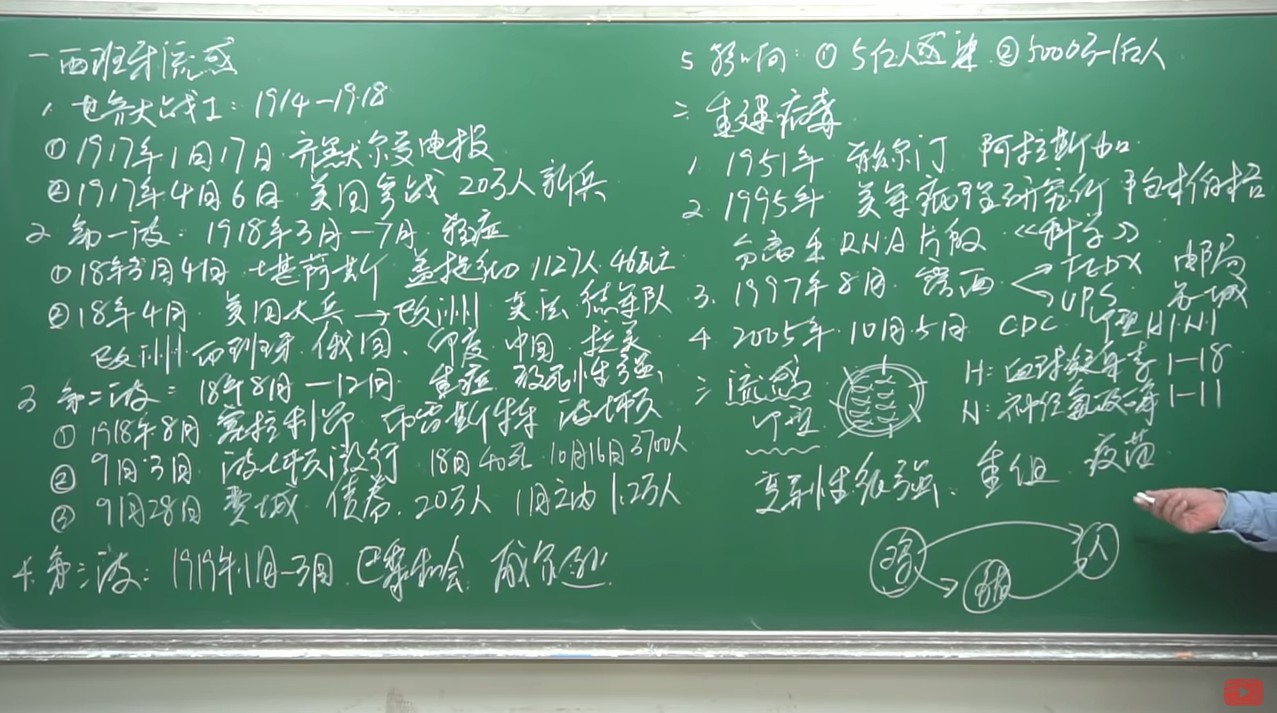 一 西班牙流感
1. 世界大战I: 1914-1918
① 1917年1月17日 齐默尔曼电报
② 1917年4月6日 美国参战 20万人新兵
2. 第一波: 1918年3月-7月 轻症
① 18年3月4日 堪萨斯 盖提 1127人 46死亡
② 18年4月 美国大兵→欧洲 英法德军队
欧洲 西班牙 俄国、印度 中国 拉美
3 第二波: 18年8月-12月 重症 致死性强
① 1918年8月 塞拉利昂 布雷斯特 波士顿
② 9月3日 波士顿 游行 18日40死 10月16日3700人
③ 9月28日 费城 债券 20万人 1月之内 1.2万人
4. 第三波: 1919年1月-3月 巴黎和会 威尔逊
5 影响: ① 5亿人感染 ② 5000万-1亿人
二 重建病毒
1. 1951年 赫尔汀 阿拉斯加
2. 1995年 美军病理研究所 陶本伯格
分离出RNA片段 《科学》
3. 1997年8月 墨西 FEDX 邮局
UPS
4 2005年10月5日 CDC 甲型H1N1
三 流感 H: 血球凝集素 1-18
甲型 N: 神经氨酸酶 1-11
变异性很强: 重组 疫苗
人
猪